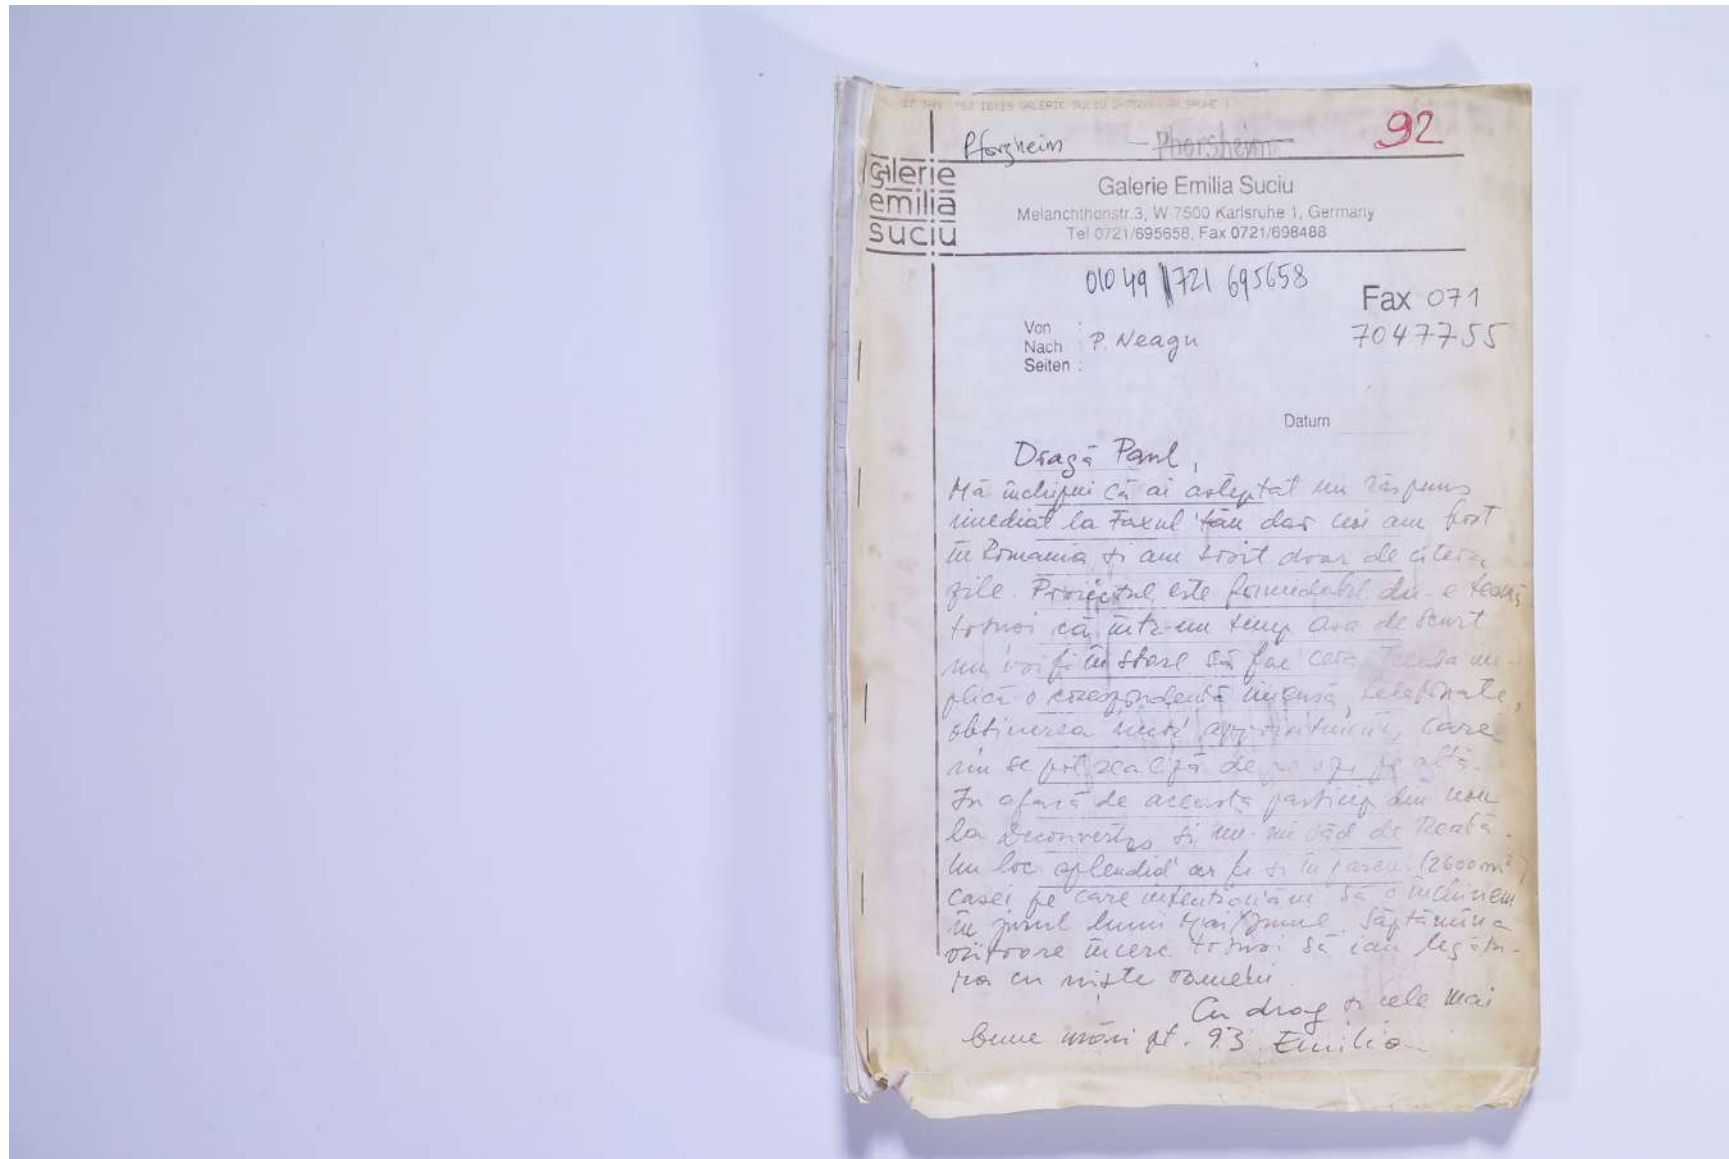 GALERIE SUCIU
Pforzheim ~~Phorsheim~~ 92
galerie
emilia
suciu
Galerie Emilia Suciu
Melanchthonstr.3, W-7500 Karlsruhe 1, Germany
Tel 0721/695658, Fax 0721/698488
010 49 721 695658
Fax 071
7047755
Von :
Nach : P. Neagu
Seiten :
Datum
Dragă Paul,
Mă închipui că ai așteptat un răspuns
imediat la Faxul tău dar noi am fost
în Romania și am sosit doar de câteva
zile. Proiectul este formidabil dar e teamă
totuși că într-un timp așa de scurt
nu voi fi în stare să fac ceva. Treaba im-
plică o corespondență imensă, telefonate,
obținerea unor care
nu se pot realiza de pe o zi pe alta.
În afară de aceasta particip din nou
la și nu-mi văd de treabă.
Un loc splendid ar fi și în parcul (2600 m²)
casei pe care intenționăm să o închiriem
în jurul lunii Mai/Iunie. Săptămîna
viitoare încerc totuși să iau legătu-
ra cu niște oameni.
Cu drag și cele mai
bune urări pt. 93 Emilia